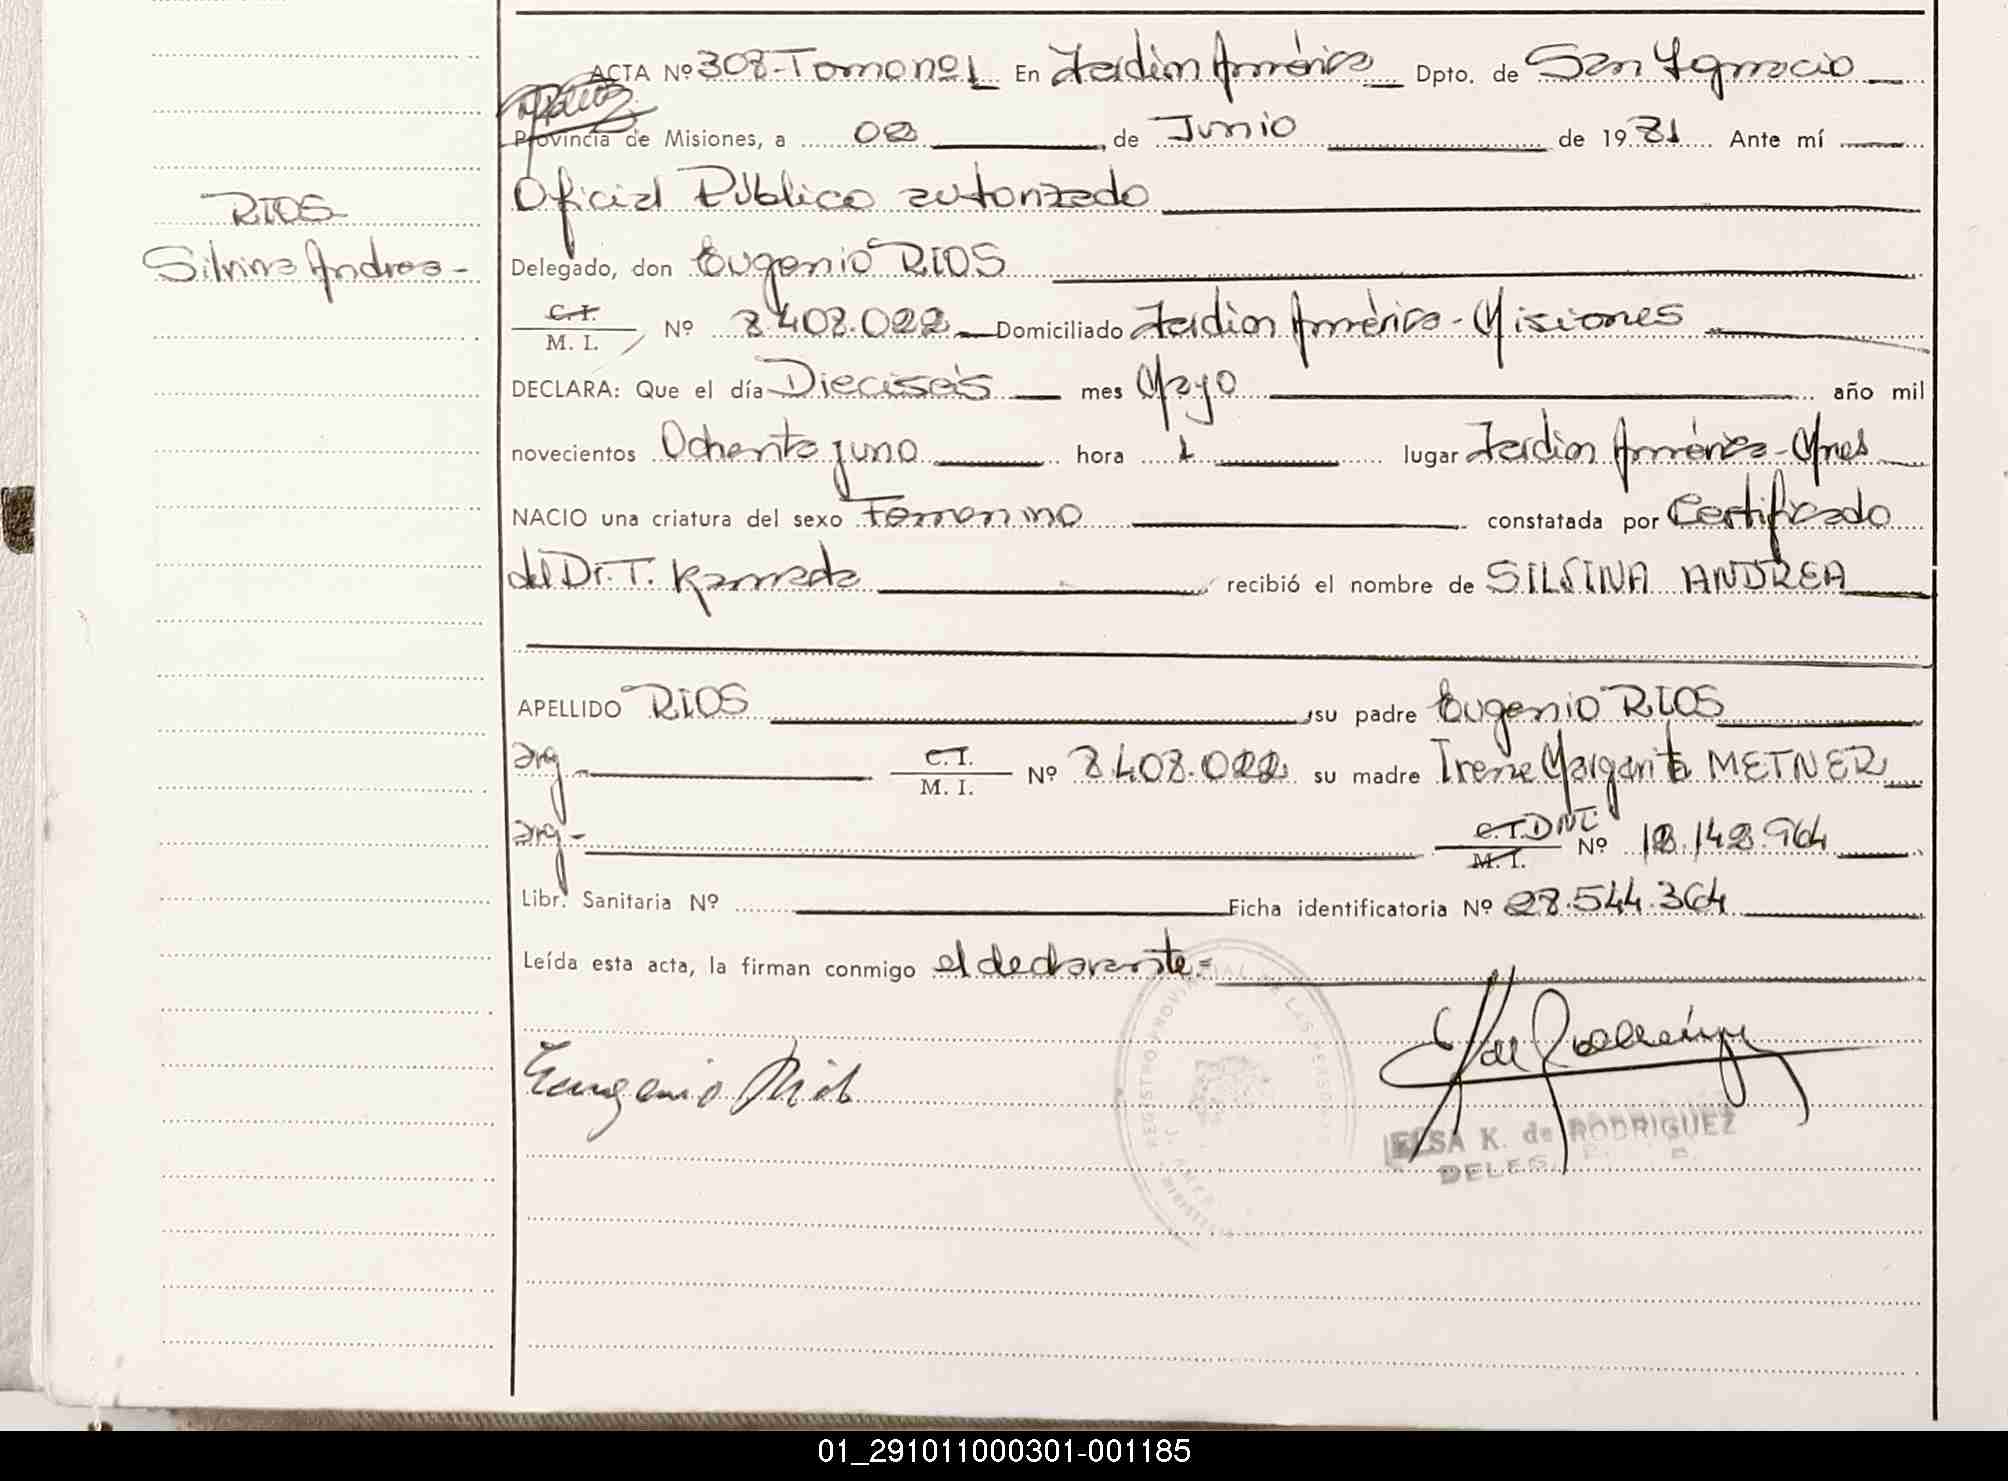 ACTA Nº 308-Tomo nº1 En Jardin América Dpto. de San Ignacio
Provincia de Misiones, a 02 de Junio de 1981 Ante mí
Oficial Público autorizado
RIOS
Silvina Andrea-
Delegado, don Eugenio RIOS
C.I.
M. I. Nº 8.408.022 Domiciliado Jardin América-Misiones
DECLARA: Que el día Dieciseis mes Mayo año mil
novecientos Ochenta y uno hora 1 lugar Jardin América-Mnes
NACIO una criatura del sexo Femenino constatada por Certificado
del Dr. T. Kameda recibió el nombre de SILVINA ANDREA
APELLIDO RIOS su padre Eugenio RIOS
arg- C.I.
M. I. Nº 8.408.022 su madre Irene Margarita METNER
arg- C.I. DNI
M. I. Nº 18.142.964
Libr. Sanitaria Nº Ficha identificatoria Nº 28.544.364
Leída esta acta, la firman conmigo el declarante=
REGISTRO PROVINCIAL DE LAS PERSONAS
Eugenio Rios
ELSA K. de RODRIGUEZ
01_291011000301-001185